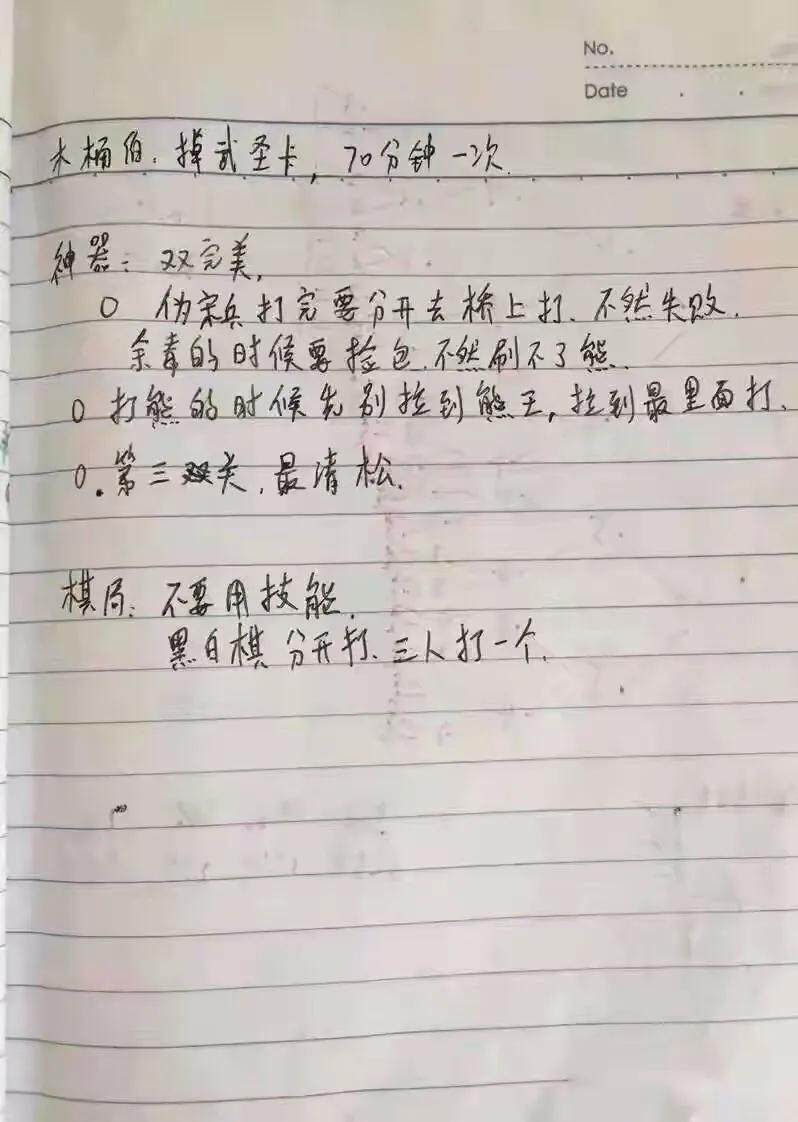 No.
Date
木桶伯：掉武圣卡，70分钟一次.
神器：双完美.
O 伪宋兵打完要分开去桥上打、不然失败.
余毒的时候要捡包.不然刷不了熊.
O 打熊的时候先别拉到熊王，拉到最里面打.
O.第三关.最清松.
棋局：不要用技能.
黑白棋分开打、三人打一个.